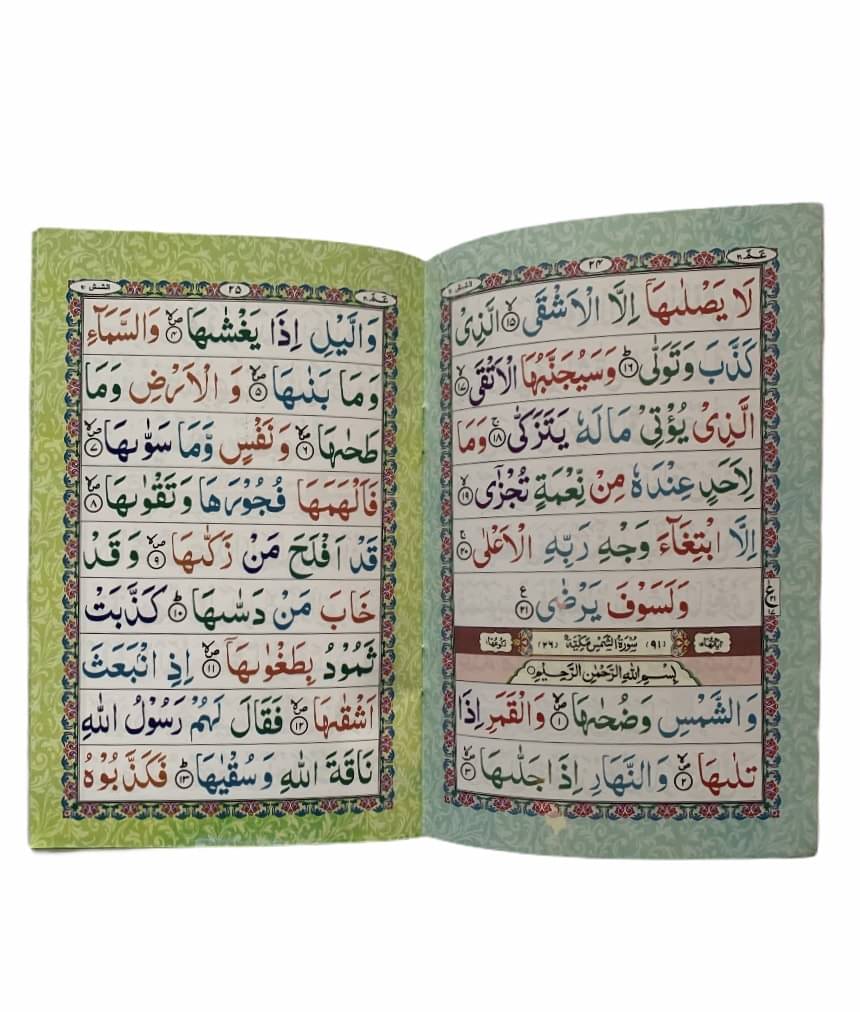 عَمَّ ٣٠ ٢٤ الشمس ٩١
لَا يَصْلٰىهَاۤ اِلَّا الْاَشْقَى ۙ﴿۱۵﴾ الَّذِیْ
كَذَّبَ وَتَوَلّٰى ؕ﴿۱۶﴾ وَسَیُجَنَّبُهَا الْاَتْقَى ۙ﴿۱۷﴾
الَّذِیْ یُؤْتِیْ مَالَهٗ یَتَزَكّٰى ۚ﴿۱۸﴾ وَمَا
لِاَحَدٍ عِنْدَهٗ مِنْ نِّعْمَةٍ تُجْزٰۤى ۙ﴿۱۹﴾
اِلَّا ابْتِغَآءَ وَجْهِ رَبِّهِ الْاَعْلٰى ۚ﴿۲۰﴾
وَلَسَوْفَ یَرْضٰى ﴿۲۱﴾ ع
اٰیَاتُهَا ۱۵ (۹۱) سُوْرَةُ الشَّمْسِ مَكِّیَّةٌ (۲۶) رُكُوْعُهَا ۱
بِسْمِ اللهِ الرَّحْمٰنِ الرَّحِیْمِ
وَالشَّمْسِ وَضُحٰىهَا ۪ۙ﴿۱﴾ وَالْقَمَرِ اِذَا
تَلٰىهَا ۪ۙ﴿۲﴾ وَالنَّهَارِ اِذَا جَلّٰىهَا ۪ۙ﴿۳﴾
عَمَّ ٣٠ ٢٥ الشمس ٩١
وَالَّیْلِ اِذَا یَغْشٰىهَا ۪ۙ﴿۴﴾ وَالسَّمَآءِ
وَمَا بَنٰىهَا ۪ۙ﴿۵﴾ وَالْاَرْضِ وَمَا
طَحٰىهَا ۪ۙ﴿۶﴾ وَنَفْسٍ وَّمَا سَوّٰىهَا ۪ۙ﴿۷﴾
فَاَلْهَمَهَا فُجُوْرَهَا وَتَقْوٰىهَا ۪ۙ﴿۸﴾
قَدْ اَفْلَحَ مَنْ زَكّٰىهَا ۪ۙ﴿۹﴾ وَقَدْ
خَابَ مَنْ دَسّٰىهَا ؕ﴿۱۰﴾ كَذَّبَتْ
ثَمُوْدُ بِطَغْوٰىهَاۤ ۪ۙ﴿۱۱﴾ اِذِ انْۢبَعَثَ
اَشْقٰىهَا ۪ۙ﴿۱۲﴾ فَقَالَ لَهُمْ رَسُوْلُ اللهِ
نَاقَةَ اللهِ وَسُقْیٰهَا ؕ﴿۱۳﴾ فَكَذَّبُوْهُ